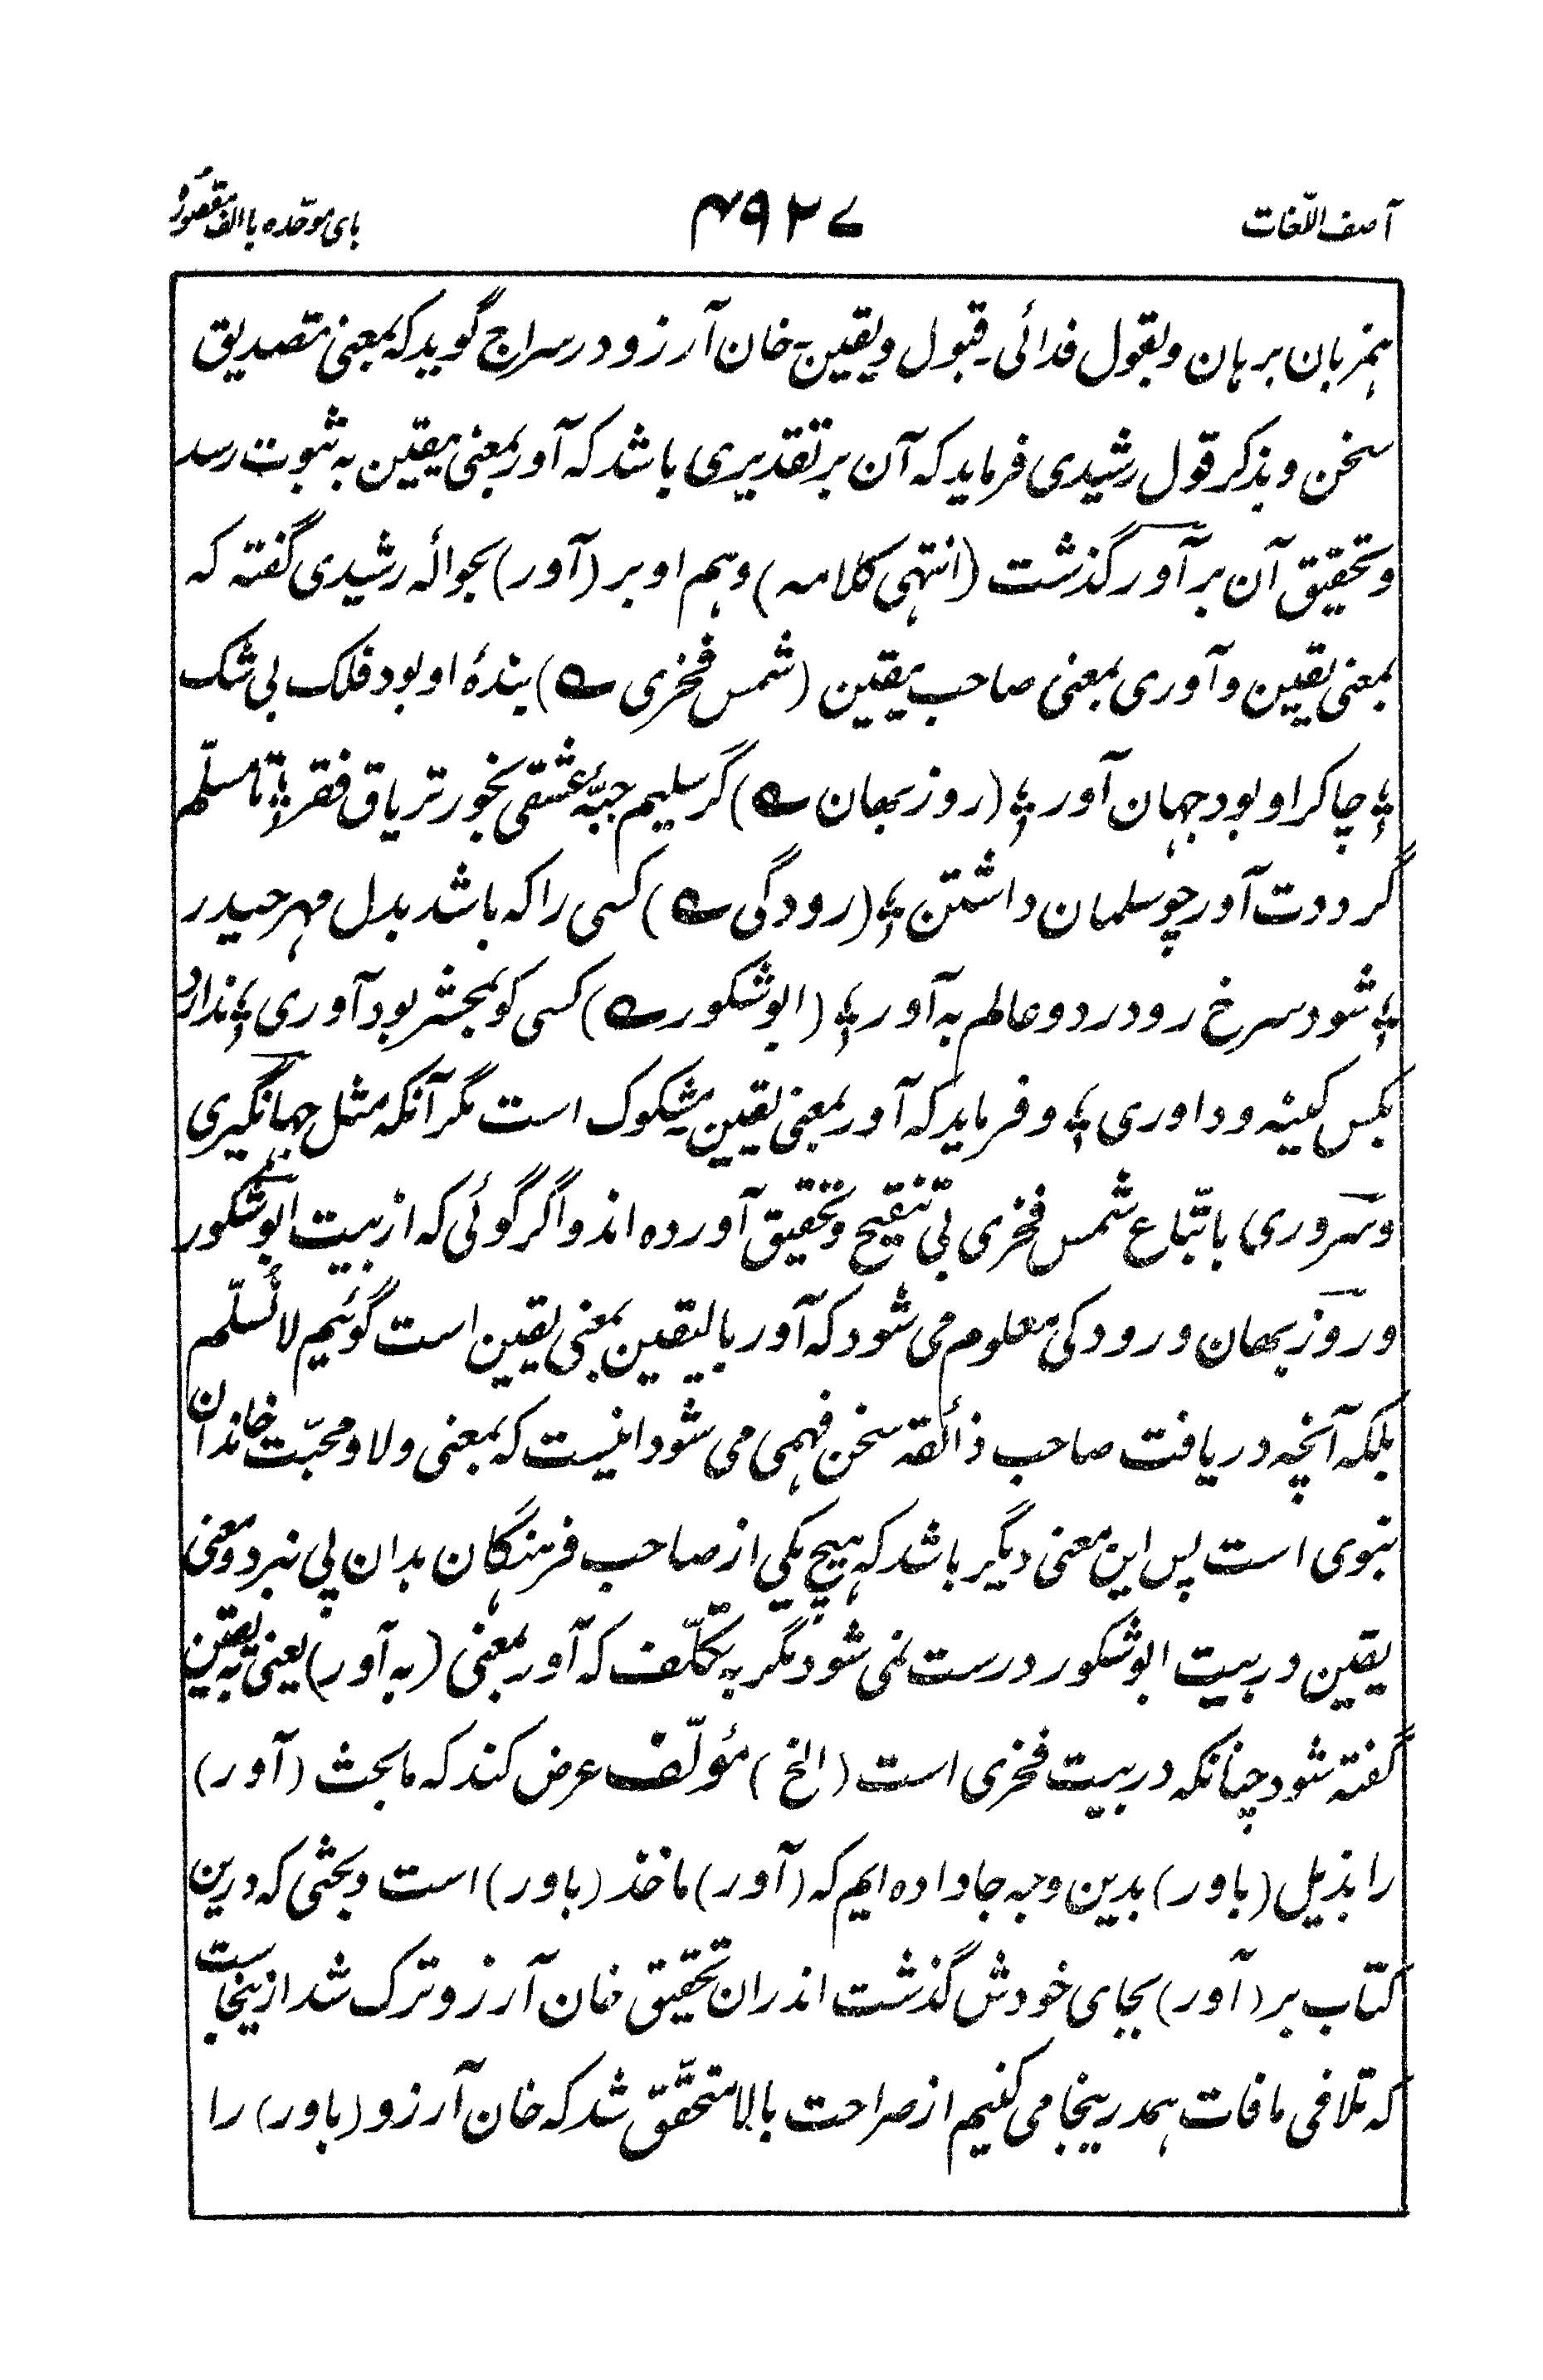 آصف اللّغات ۴۹۲۷ بای موحّده با الف مقصوره
همزبان برہان وبقول فدائی۔ قبول ویقین۔ خان آرزو در سراج گوید که بمعنیٔ تصدیق
سخن و بذکر قول رشیدی فرماید که آن بر تقدیری باشد که آور بمعنی یقین به ثبوت رسد
وتحقیق آن بر آور گذشت (انتہی کلامہ) وہم او بر (آور) بحوالۂ رشیدی گفتہ کہ
بمعنی یقین و آوری بمعنیٔ صاحب یقین (شمس فخری ؎) بندۂ او بود فلک بی شک
؛ چاکر او بود جہان آور ؛ (روزبهان ؎) گر سلیم حبّۂ عشقی بخور تریاق فقر ؛ تا مسلّم
گرددت آور چو سلمان داشتن ؛ (رودگی ؎) کسی را که باشد بدل مہر حیدر
؛ شود سرخ رو در دو عالم به آور ؛ (ابوشکور ؎) کسی کو بمحشر بود آوری ؛ ندارد
بکس کینه و داوری ؛ و فرماید که آور بمعنی یقین مشکوک است مگر آنکه مثل جہانگیری
وسروری باتّباع شمس فخری بی تنقیح و تحقیق آورده اند و اگر گوئی که از بیت ابوشکور
و روزبهان و رودکی معلوم می شود که آور بالیقین بمعنی یقین است گوئیم لا نُسلّم
بلکه آنچه دریافت صاحب ذائقه سخن فہمی می شود اینست که بمعنی ولا و محبّت خاندان
نبوی است پس این معنی دیگر باشد که ہیچ یکی از صاحب فرہنگان بدان پی نبرد و معنی
یقین در بیت ابوشکور درست نمی شود مگر به تکلّف که آور بمعنی (به آور) یعنی به یقین
گفته شود چنانکه در بیت فخری است (الخ) مؤلّف عرض کند که ما بحث (آور)
را بذیل (باور) بدین وجه جا داده ایم که (آور) ماخذ (باور) است و بحثی که درین
کتاب بر (آور) بجای خودش گذشت اندران تحقیق خان آرزو ترک شد ازینجاست
که تلافی مافات ہمدرینجا می کنیم از صراحت بالا متحقّق شد که خان آرزو (باور) را